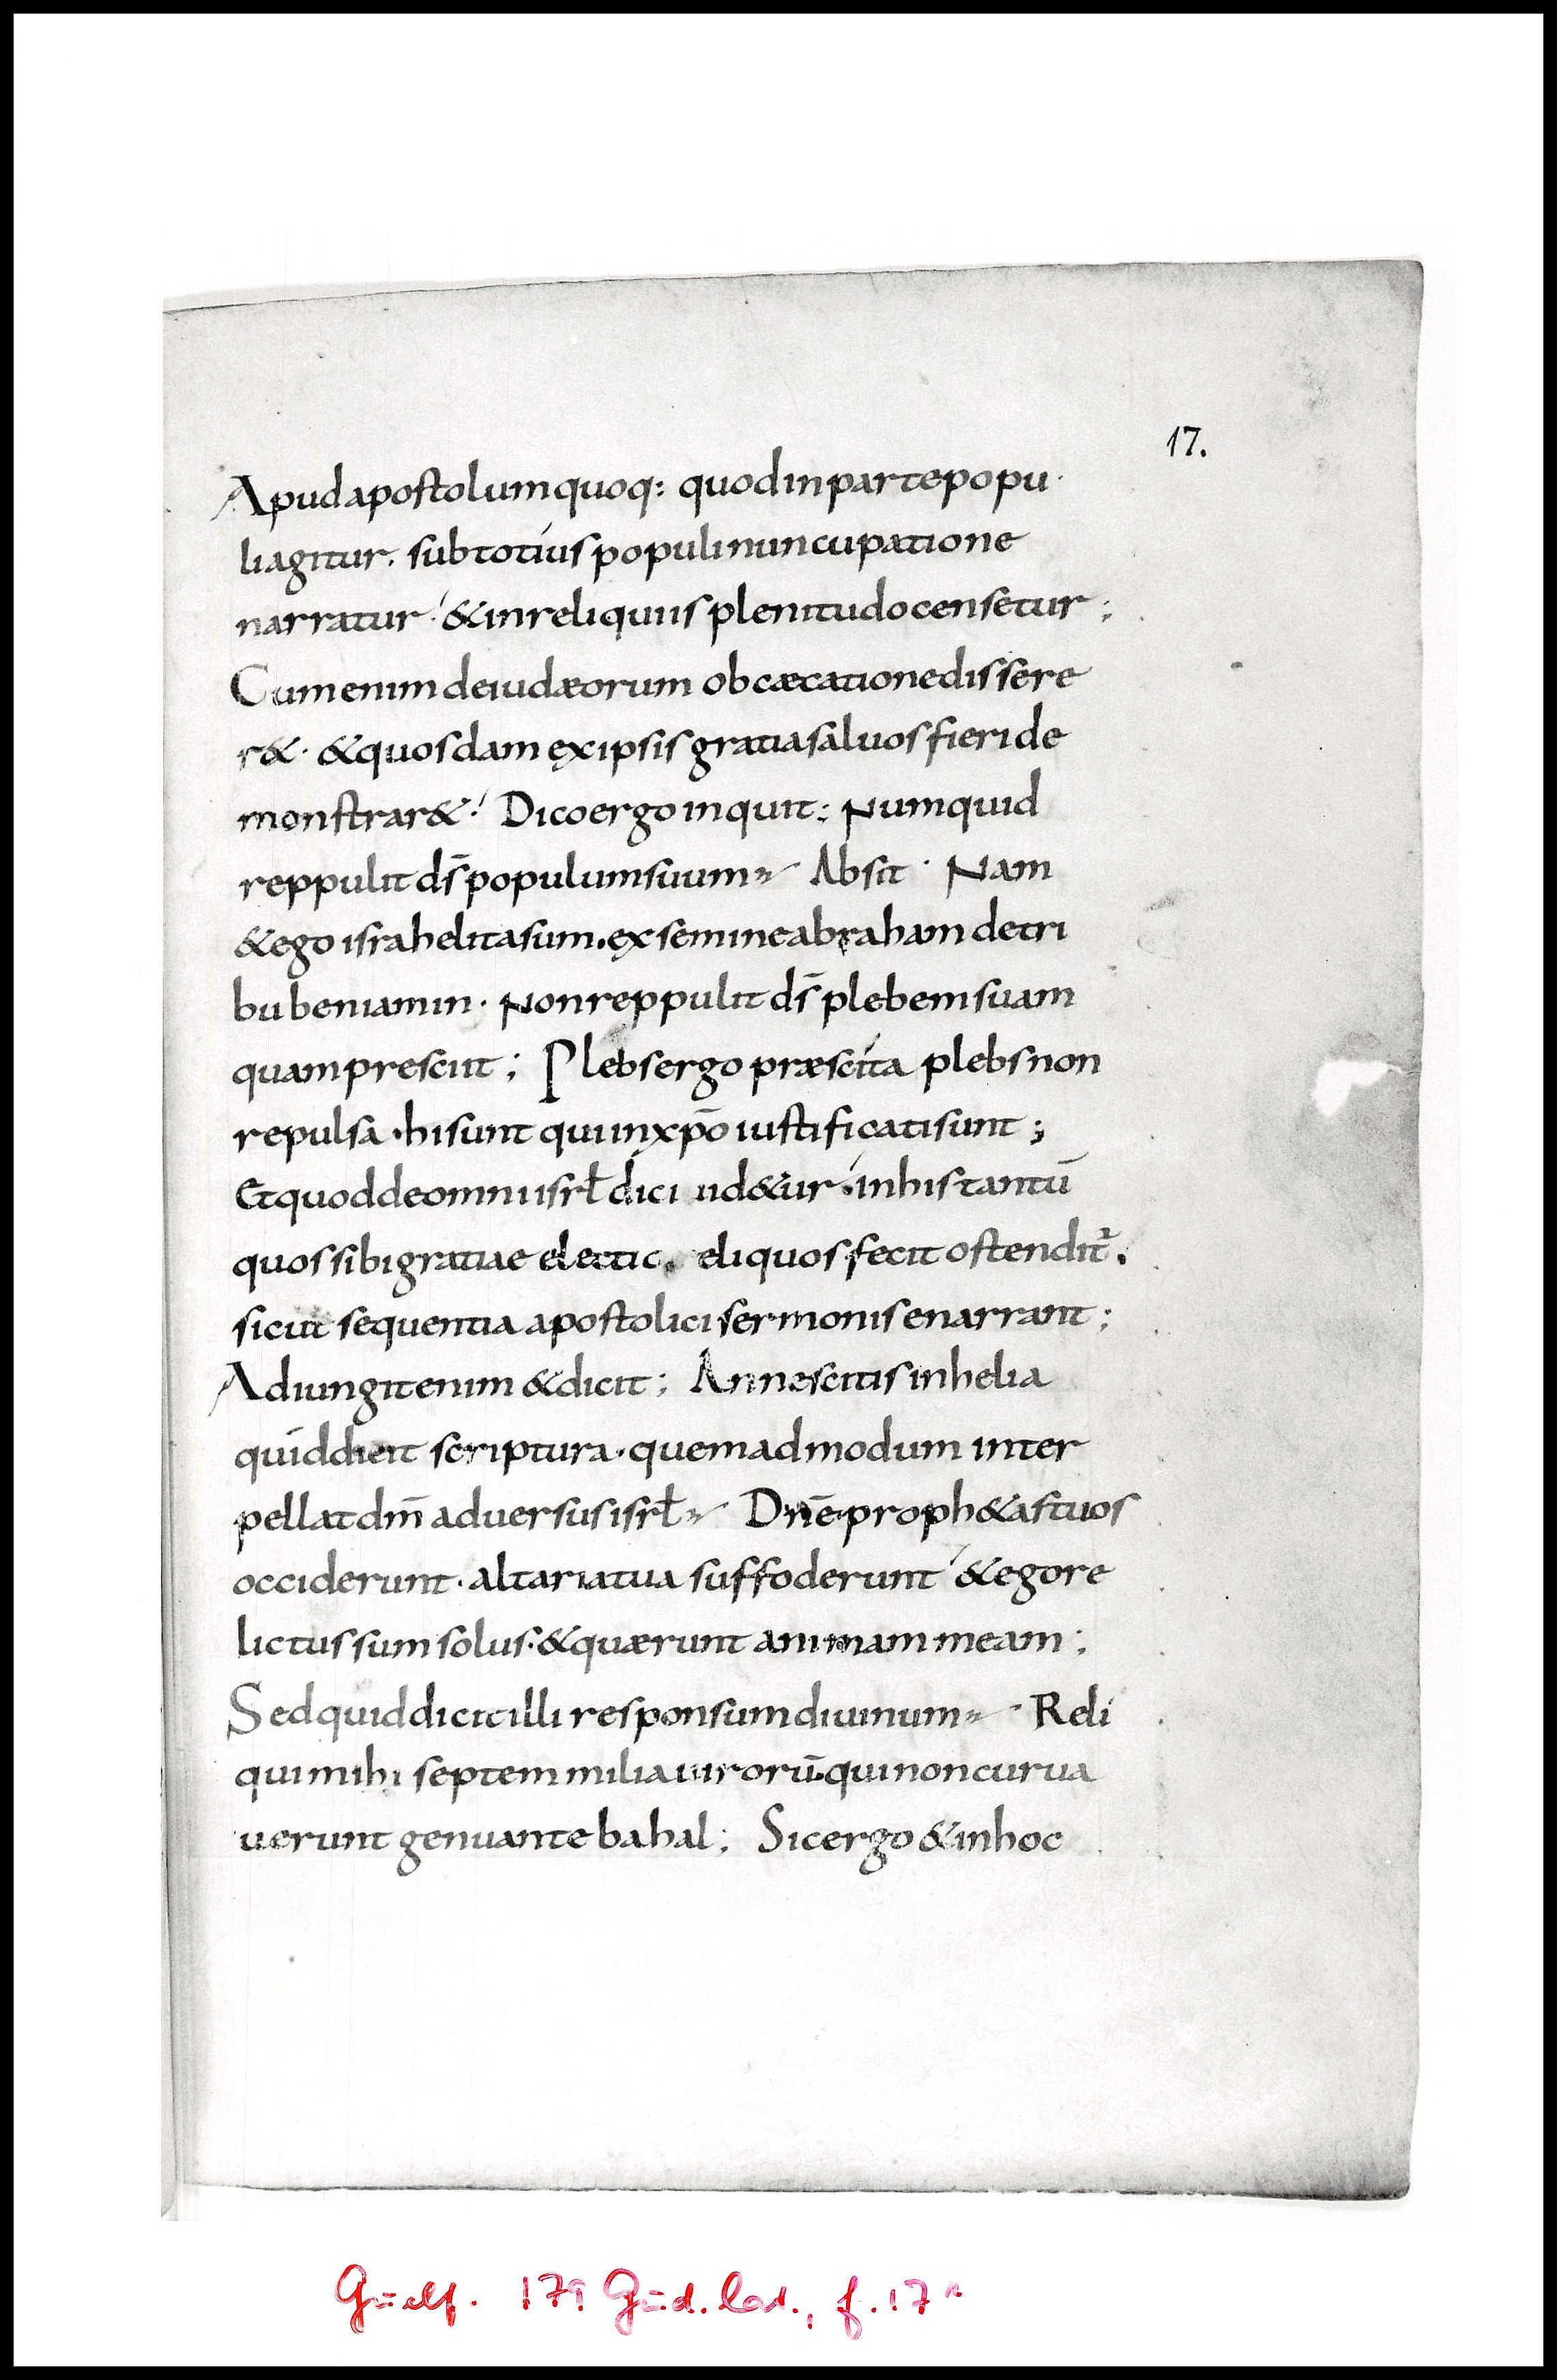 17.
Apud apostolum quoq: quod in parte popu
li agitur. sub totius populi nuncupatione
narratur & in reliquiis plenitudo censetur;
Cum enim de iudæorum obcæcatione dissere
r&. & quosdam ex ipsis gratia saluos fieri de
monstrar&. Dico ergo inquit: Numquid
reppulit ds̄ populum suum Absit. Nam
& ego israhelita sum. ex semine abraham de tri
bu beniamin. Non reppulit ds̄ plebem suam
quam presciit; Plebs ergo præscita plebs non
repulsa. hi sunt qui in xpō iustificati sunt;
Et quod de omni isrł dici uid&ur. in his tantū
quos sibi gratiae electio eliquos fecit ostendit᷑.
sicut sequentia apostolici sermonis enarrant;
Adiungit enim & dicit; An nescitis in helia
quid dicit scriptura. quemadmodum inter
pellat dm̄ aduersus isrł Dnē proph&as tuos
occiderunt. altaria tua suffoderunt & ego re
lictus sum solus. & quærunt animam meam;
Sed quid dicit illi responsum diuinum Reli
qui mihi septem milia uirorū. qui non curua
uerunt genu ante bahal; Sic ergo & in hoc
Guelf. 179 Gud. lat., f. 17r